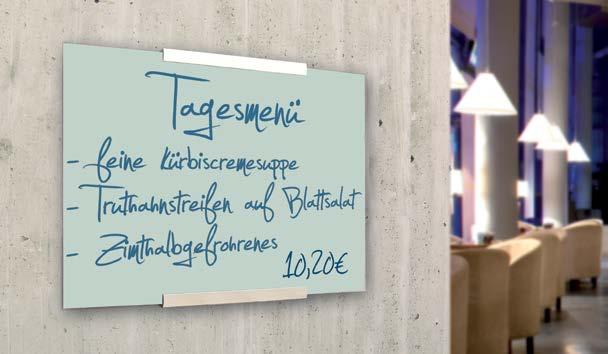 Tagesmenü
- feine Kürbiscremesuppe
- Truthahnstreifen auf Blattsalat
- Zimthalbgefrohrenes
10,20€